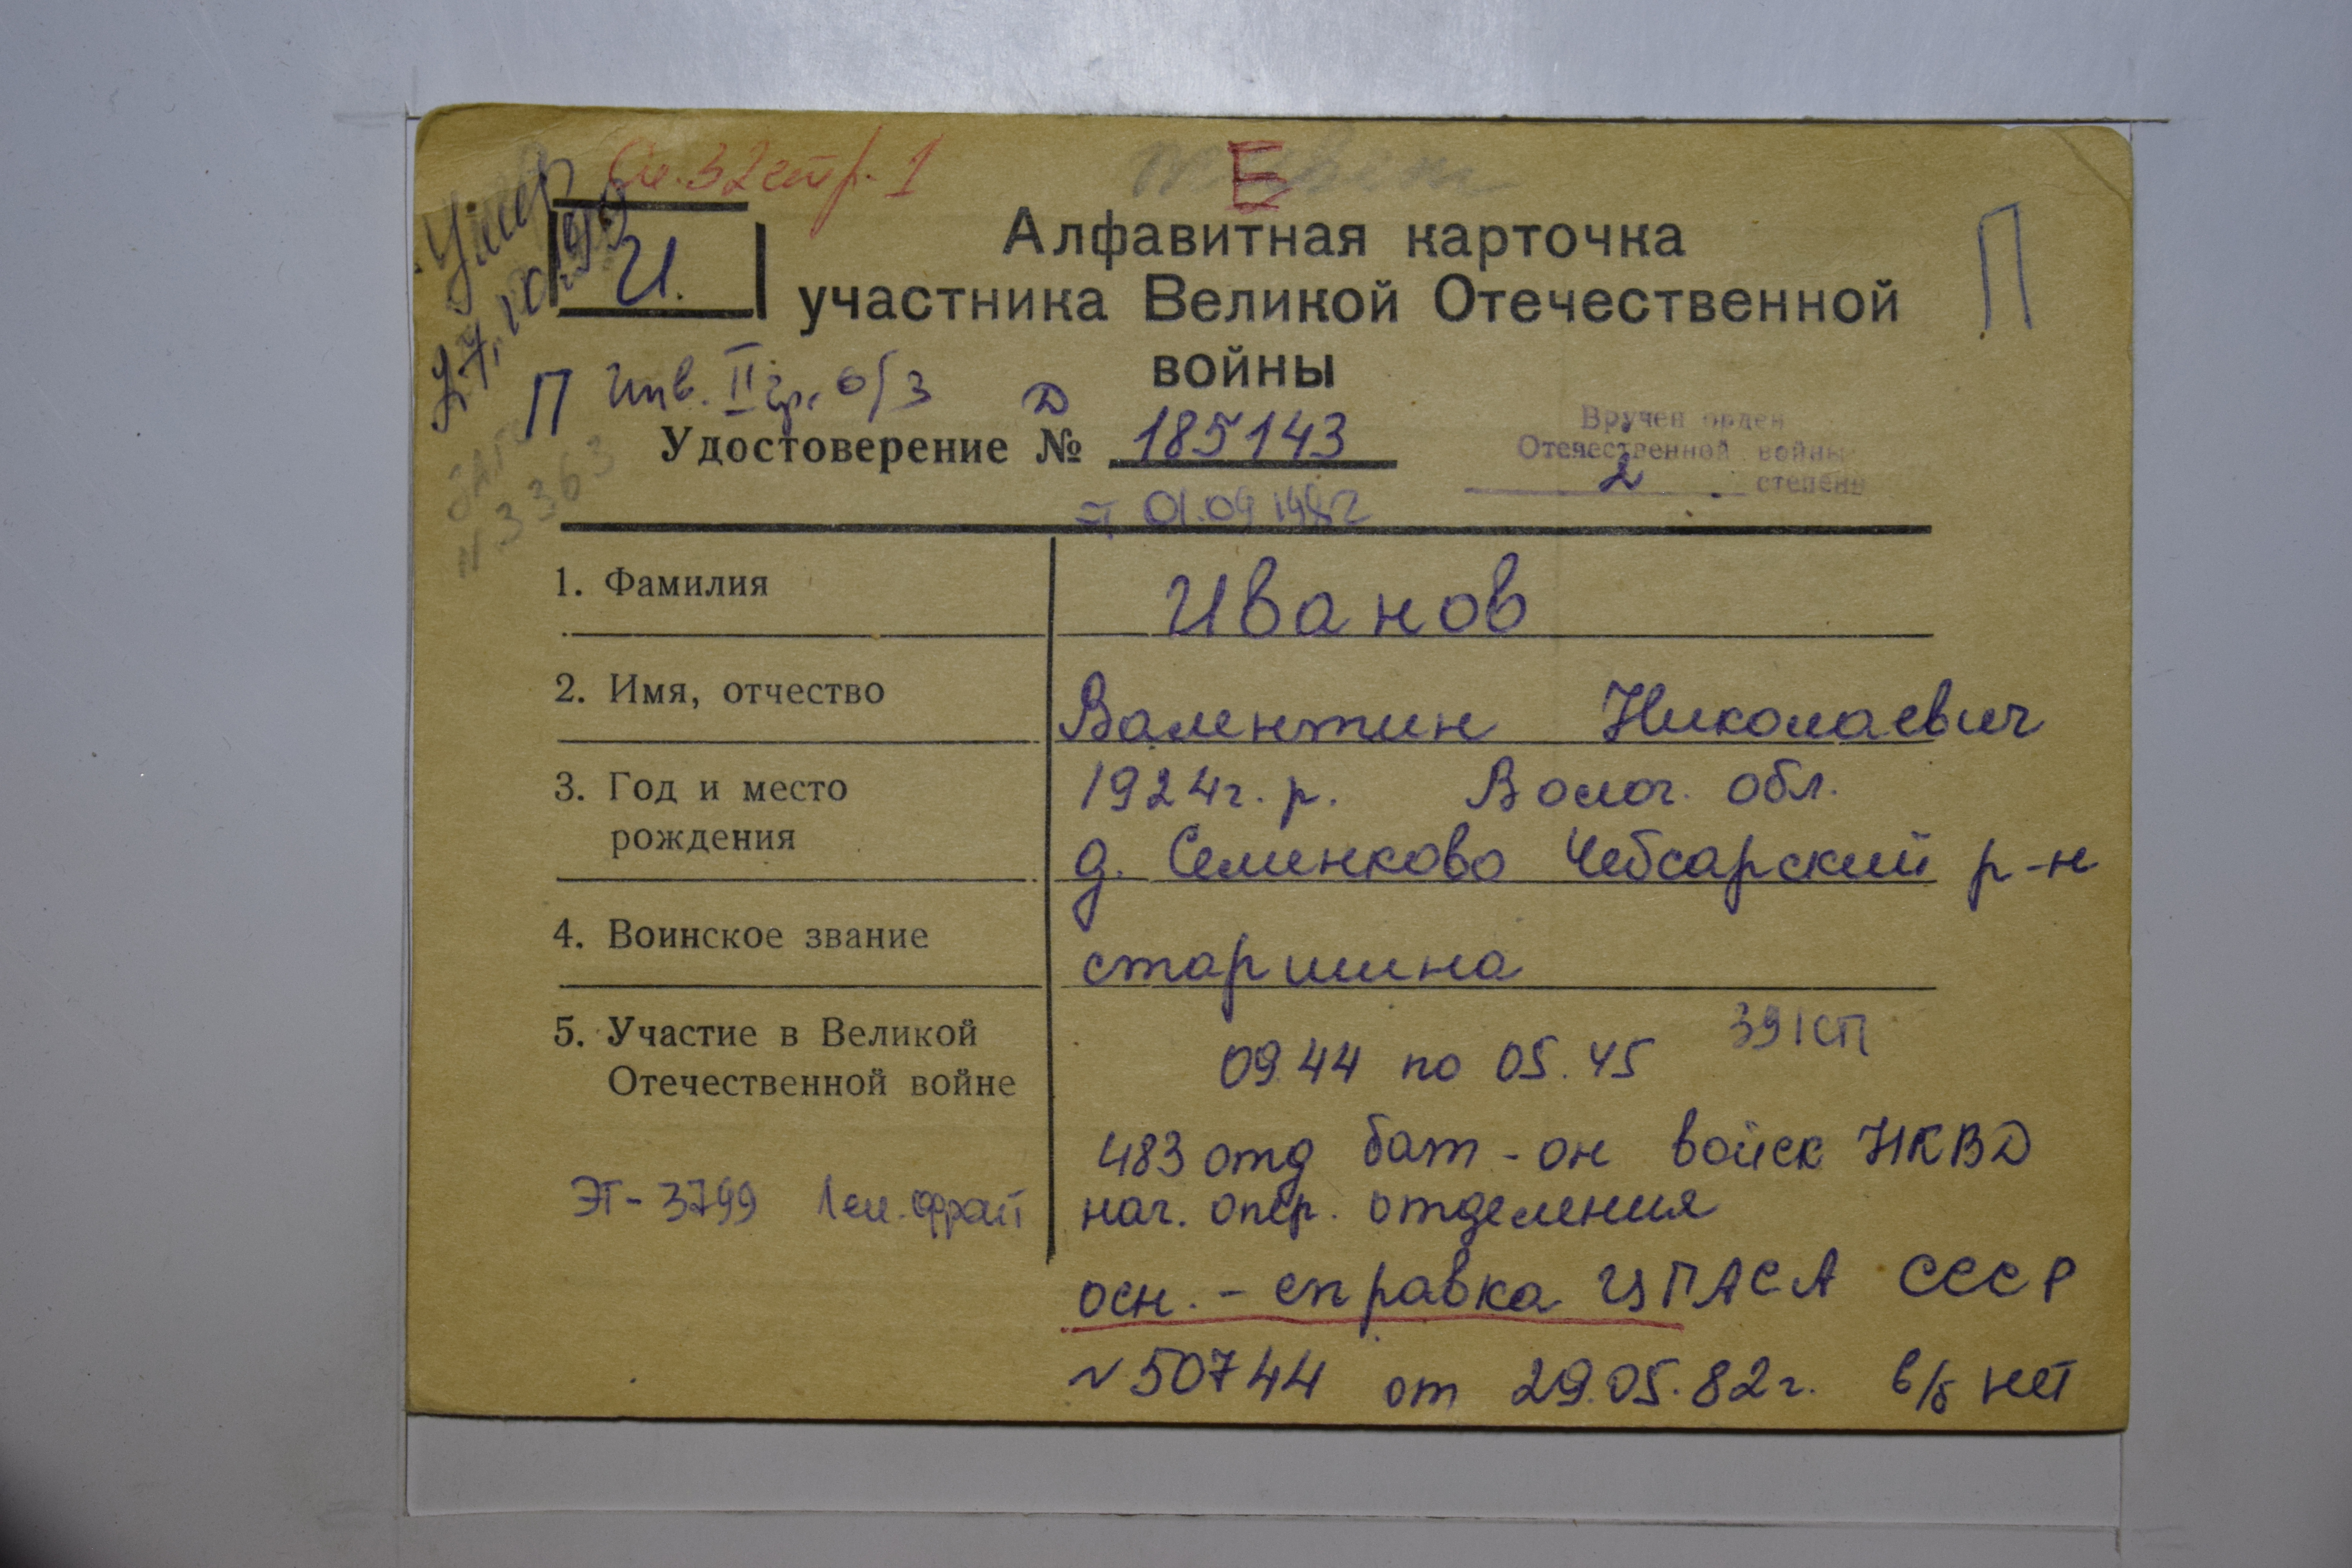 Умер
Оп. 32 стр. 1
Б
Алфавитная карточка
участника Великой Отечественной
войны
И.
П
П Инв. II гр. о/з
Удостоверение Д № 185143
от 01.09.1982
Вручен орден
Отечественной войны
2 степени
1. Фамилия Иванов
2. Имя, отчество Валентин Николаевич
3. Год и место 1924 г. р. Волог. обл.
рождения д. Семенково Чебсарский р-н
4. Воинское звание старшина
5. Участие в Великой 391 СП
Отечественной войне 09.44 по 05.45
483 отд бат-он войск НКВД
ЭТ-3799 Лен. фронт нач. опер. отделения
осн. - справка ЦГАСА СССР
№ 50744 от 29.05.82 г. в/б нет